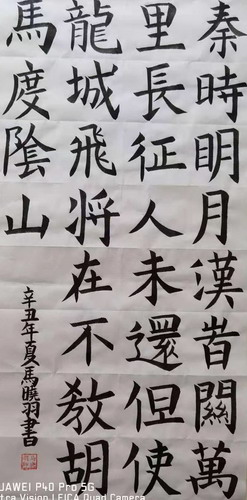 秦時明月漢旹關萬
里長征人未還但使
龍城飛将在不教胡
馬度陰山
辛丑年夏馬曉羽書
UAWEI P40 Pro 5G
tra Vision | LEICA Quad Camera